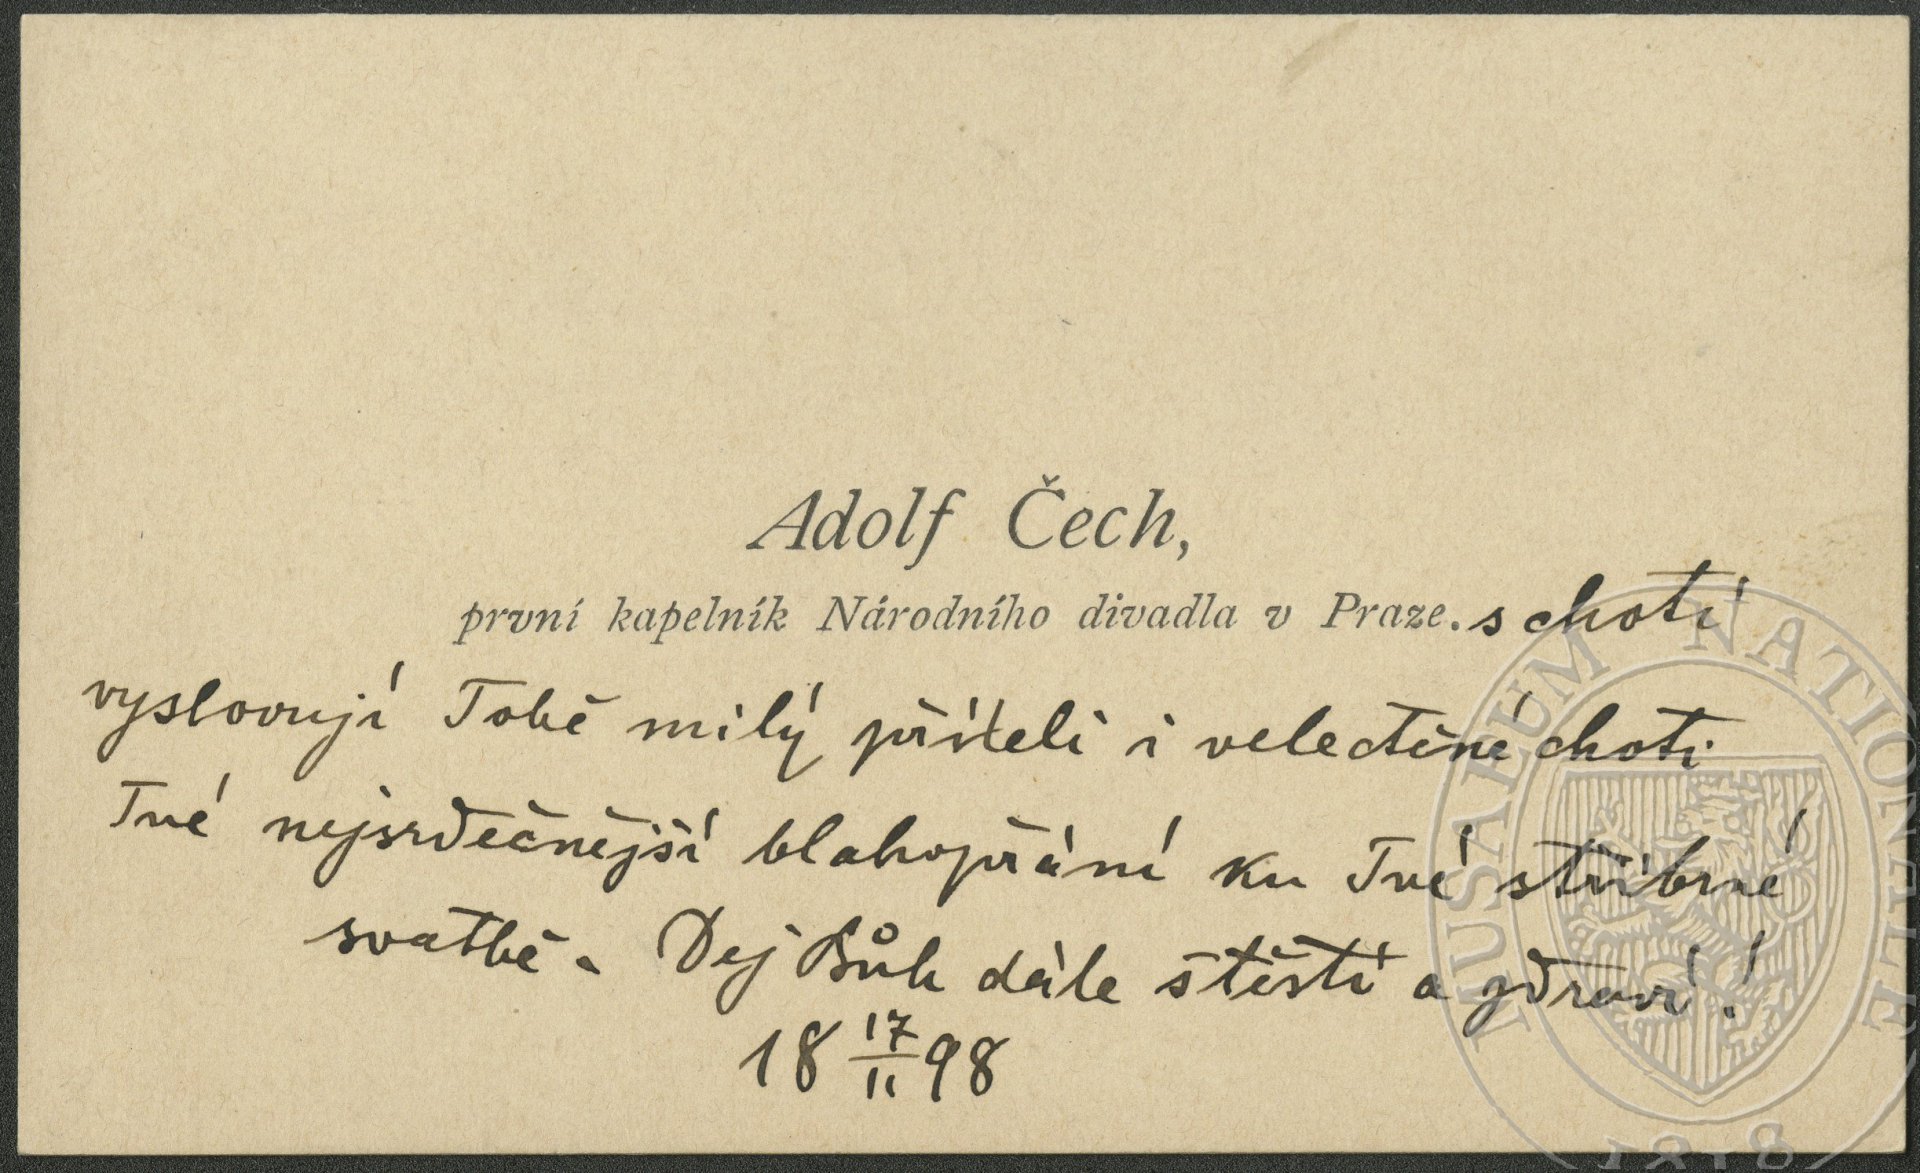 Adolf Čech,
první kapelník Národního divadla v Praze. s chotí
vyslovují Tobě milý příteli i velectěné choti
Tvé nejsrdečnější blahopřání ku Tvé stříbrné
svatbě. Dej Bůh dále štěstí a zdraví!
18 17/11 98
MUSAEUM NATIONALE
1818